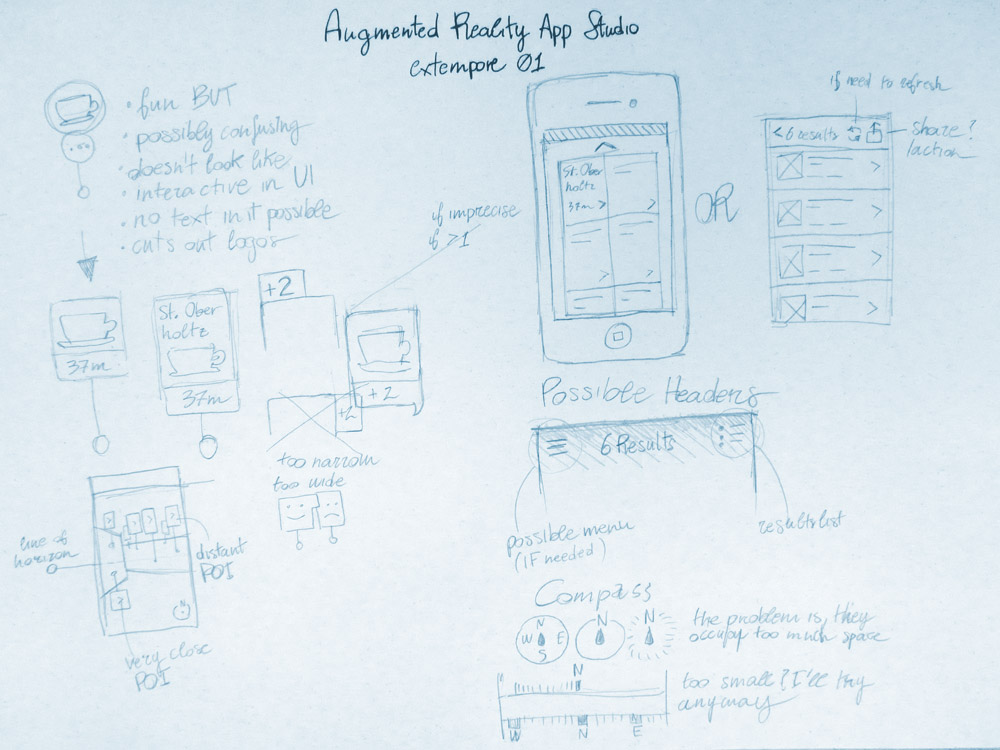 Augmented Reality App Studio
extempore 01
• fun BUT
• possibly confusing
• doesn't look like
• interactive in UI
• no text in it possible
• cuts out logos
37m
St. Ober
holtz
37m
+2
+2
+2
if imprecise
if >1
too narrow
too wide
line of
horizon
distant
POI
N
very close
POI
St. Ober
holtz
37m >
>
>
>
OR
if need to refresh
< 6 results
share?
/action
>
>
>
>
Possible Headers
6 Results
possible menu
(IF needed)
results list
Compass
N
W E
S
N
N
the problem is, they
occupy too much space
N
W N E
too small? I'll try
anyway